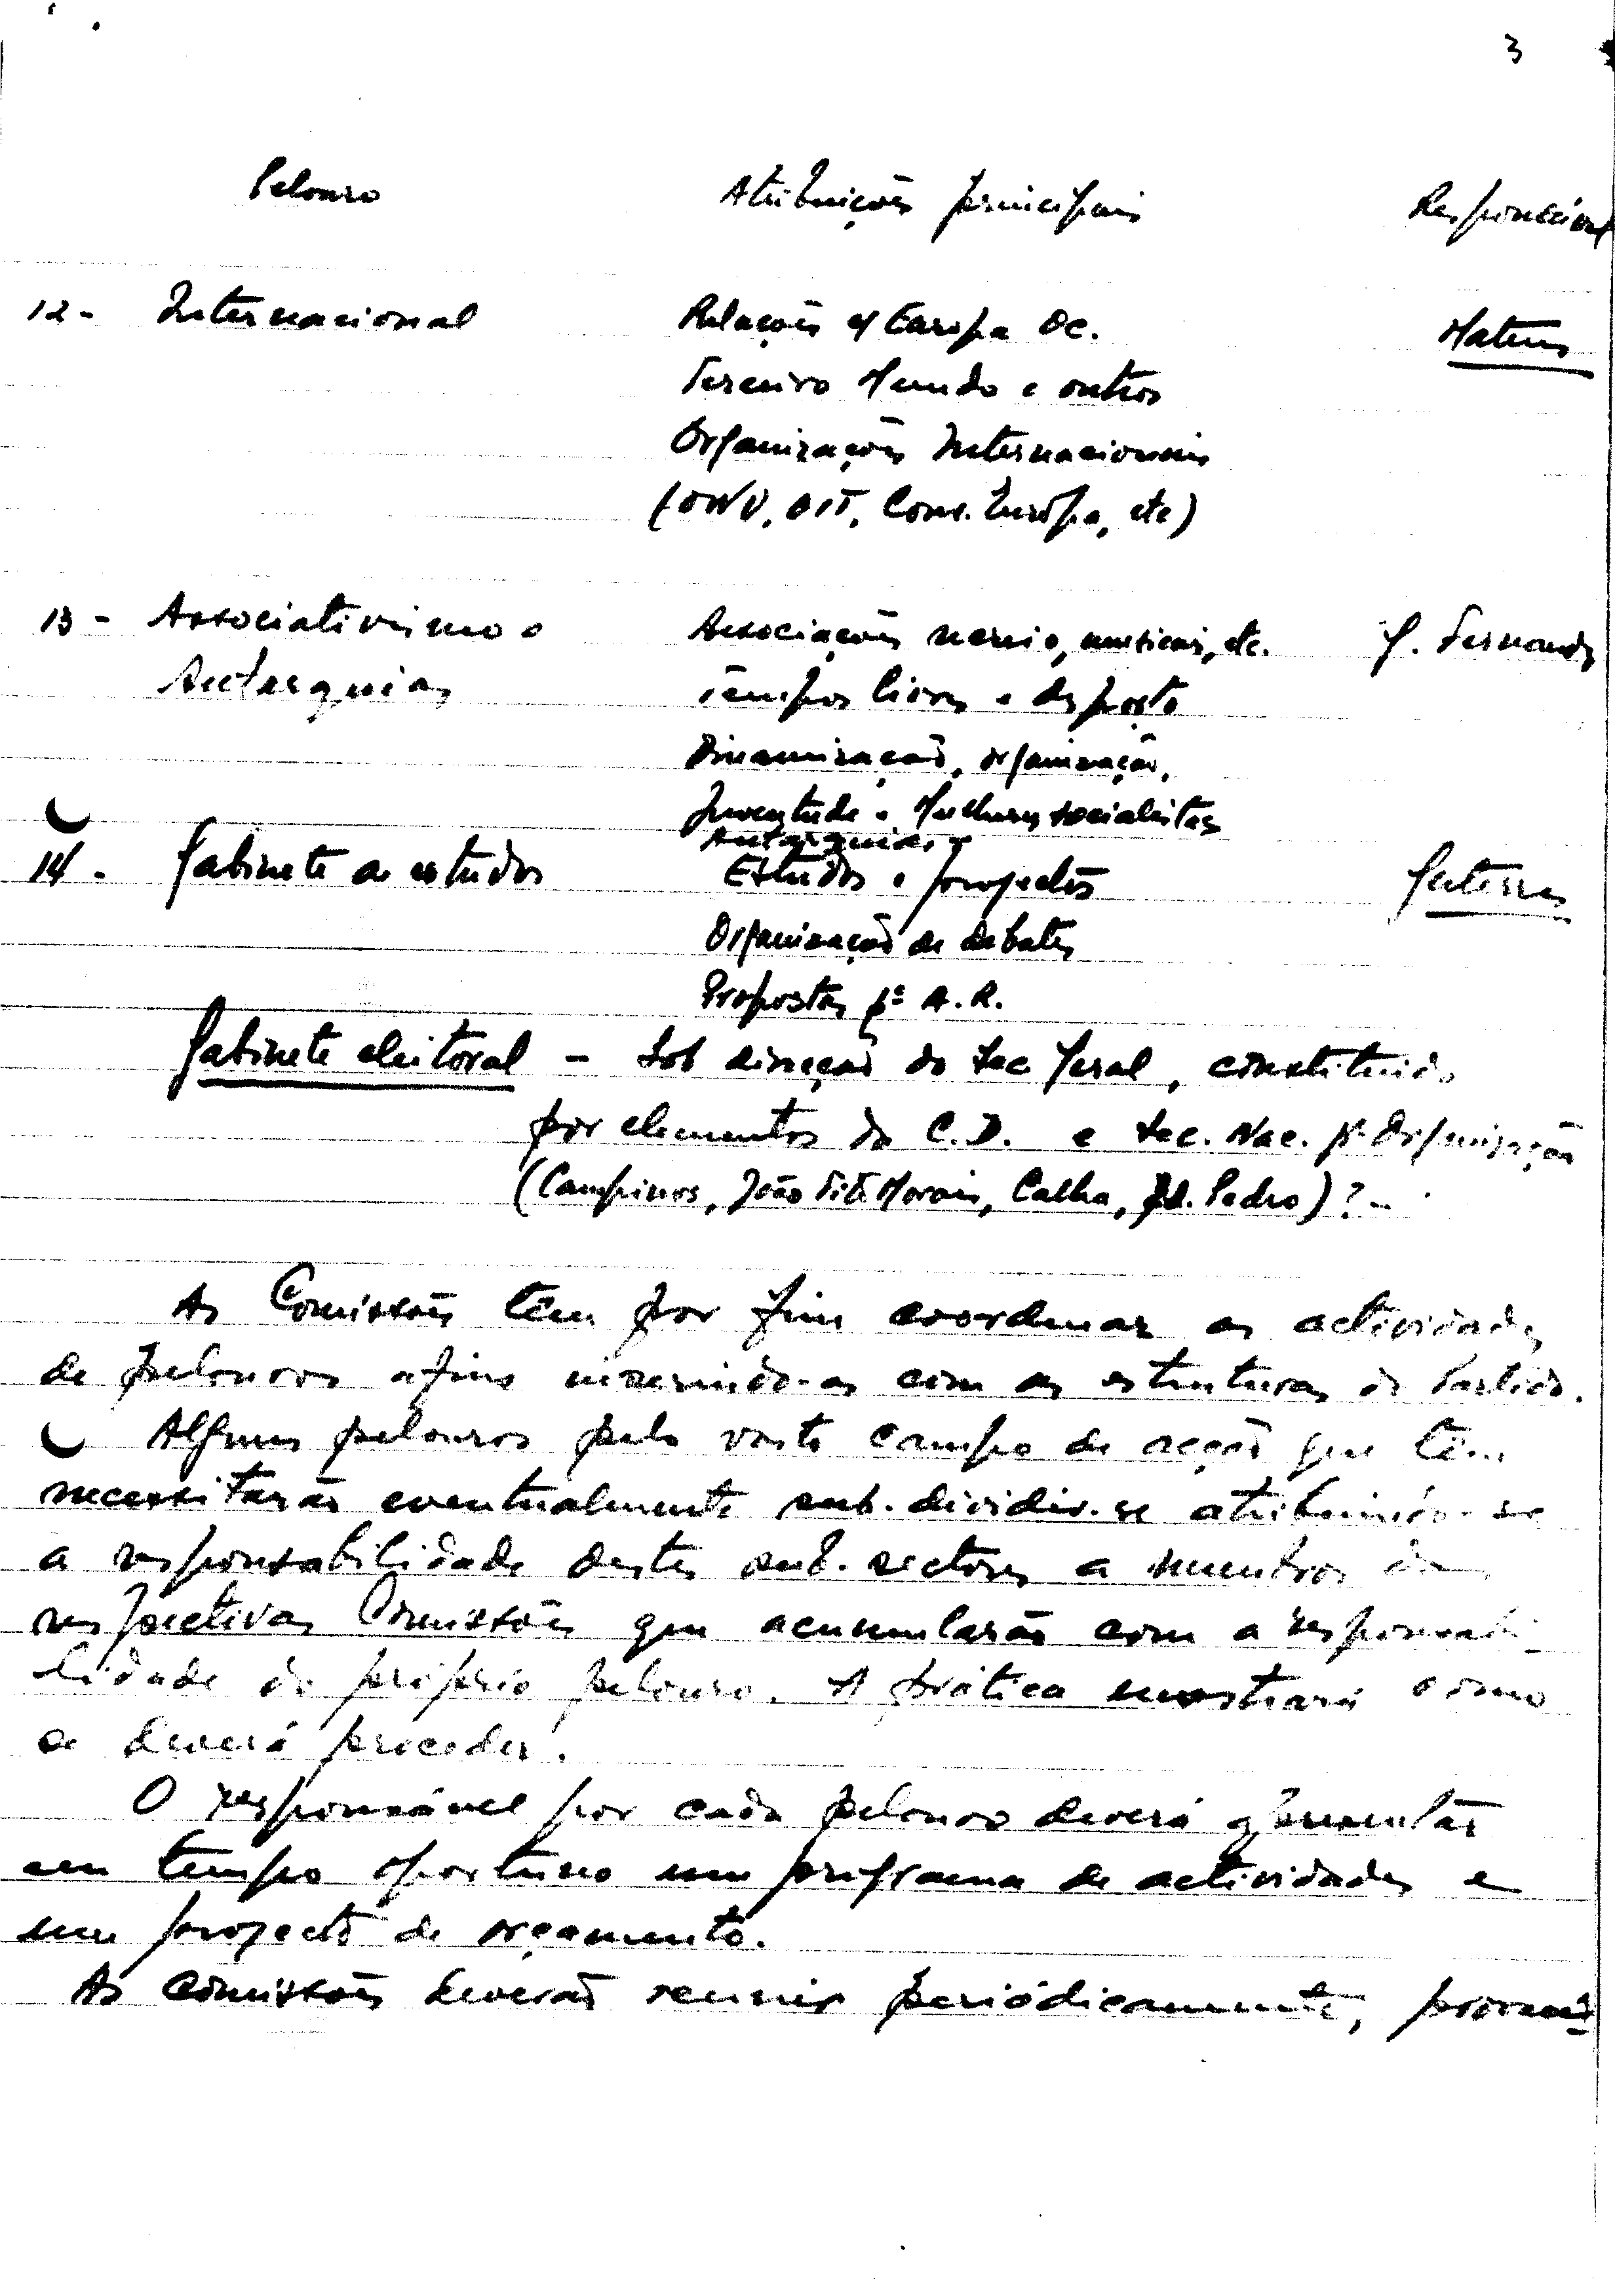 3
Pelouro Atribuições principais Responsável
12 - Internacional Relações c/ Europa Oc. Mateus
Terceiro Mundo e outros
Organizações Internacionais
(ONU, OIT, Cons. Europa, etc)
13 - Associativismo e Associações recreio, musicais, etc. G. Fernandes
Autarquias Tempos livres e desporto
Dinamização, organização,
Juventude e Mulheres socialistas
Autarquias
14 - Gabinete de estudos Estudos e projectos Guterres
Organização de debates
Propostas pª A.R.
Gabinete eleitoral - Sob direcção do Sec Geral, constituido
por elementos da C.D. e Sec. Nac. pª Organização
(Campinos, João Tito Morais, Calha, Ed. Pedro)? -
As Comissões têm por fim coordenar as actividades
de pelouros afins inserindo-as com as estruturas do Partido.
Alguns pelouros pelo vasto campo de acção que têm
necessitarão eventualmente sub-dividir-se atribuindo-se
a responsabilidade destes sub-sectores a membros das
respectivas Comissões que acumularão com a responsabi-
lidade do próprio pelouro. A prática mostrará como
se deverá proceder.
O responsável por cada pelouro deverá apresentar
em tempo oportuno um programa de actividades e
um projecto de orçamento.
As Comissões deverão reunir periódicamente,